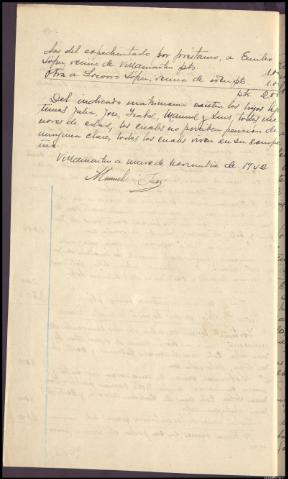 das del expedientado por préstamo, a Emilio
López, vecino de Villamartin pts
Otra a Socorro López, vecina de idem pts
pts
Del indicado matrimonio existen los hijos legí
timos Julia, José, Isabel, Manuel y Luis, todos me
nores de edad, los cuales no perciben pensión de
ninguna clase, todos los cuales viven en su compa
ñia
Villamartin a nueve de noviembre de 1940
Manuel